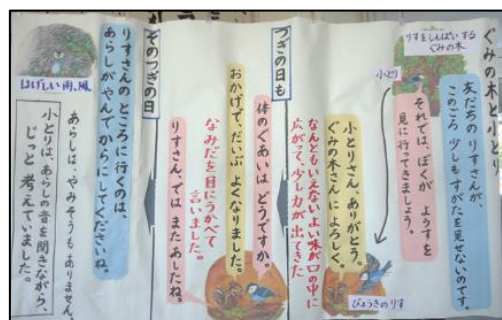 ぐみの木と小とり
りすをしんぱいする
ぐみの木
友だちのりすさんが、
このごろ少しもすがたを見せないのです。
それでは、ぼくがようすを
見に行ってきましょう。
小とり
小とりさん、ありがとう。
ぐみの木さんによろしく。
なんともいえないよい味が口の中に
広がって、少し力が出てきた
びょうきのりす
つぎの日も
体のぐあいはどうですか。
おかげで、だいぶよくなりました。
なみだを目にうかべて
言いました。
りすさん、ではまたあしたね。
そのつぎの日
はげしい雨、風
りすさんのところに行くのは、
あらしがやんでからにしてくださいね。
あらしは、やみそうもありません。
小とりは、あらしの音を聞きながら、
じっと考えていました。